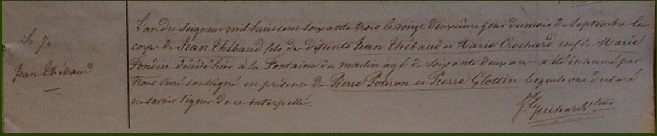 Se Je
Jean Thébaud
L'an du seigneur mil huit cent soixante trois le vingt deuxième jour du mois de Septembre le
corps de Jean Thébaud fils de défunts Jean Thébaud et Marie Crochard veuf de Marie
Fondin décédé hier à la Fontaine du moulin âgé de soixante deux ans a été inhumé par
nous curé soussigné en présence de Pierre Poiron et Pierre Glottin lesquels ont déclaré
ne savoir signer de ce interpellé